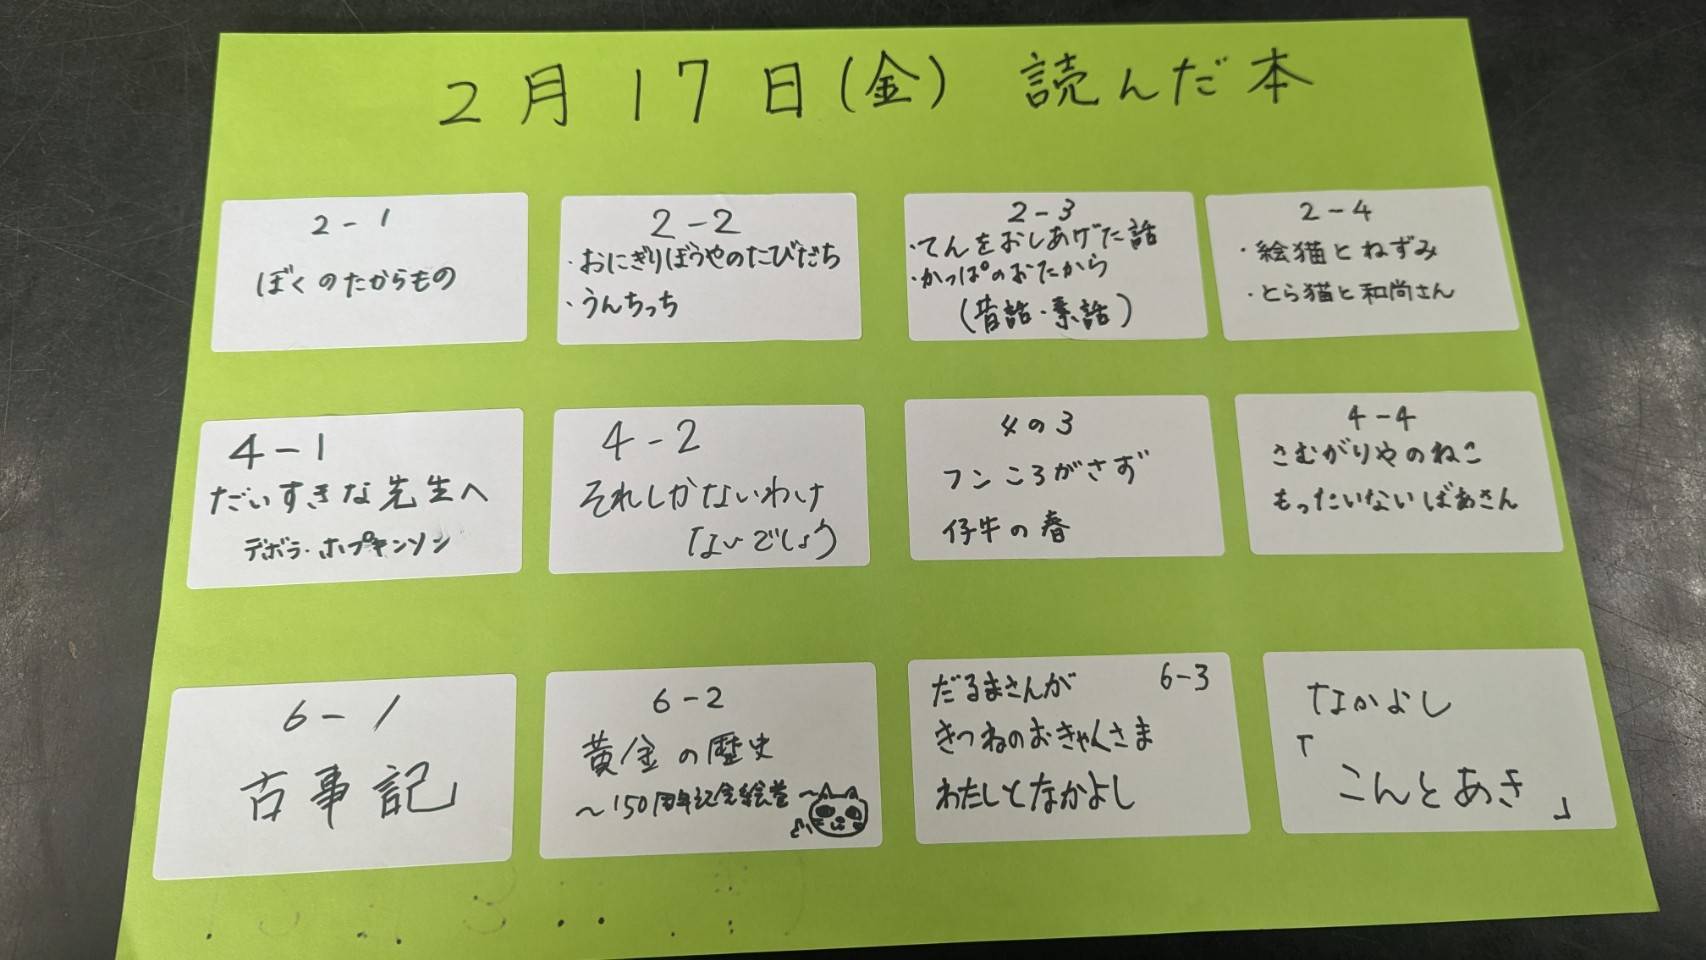 2月17日(金) 読んだ本
2-1
ぼくのたからもの
2-2
・おにぎりぼうやのたびだち
・うんちっち
2-3
・てんをおしあげた話
・かっぱのおたから
(昔話・素話)
2-4
・絵猫とねずみ
・とら猫と和尚さん
4-1
だいすきな先生へ
デボラ・ホプキンソン
4-2
それしかないわけ
ないでしょう
4の3
フンころがさず
仔牛の春
4-4
さむがりやのねこ
もったいないばあさん
6-1
古事記
6-2
黄金の歴史
~150周年記念絵巻~
6-3
だるまさんが
きつねのおきゃくさま
わたしとなかよし
なかよし
「こんとあき」